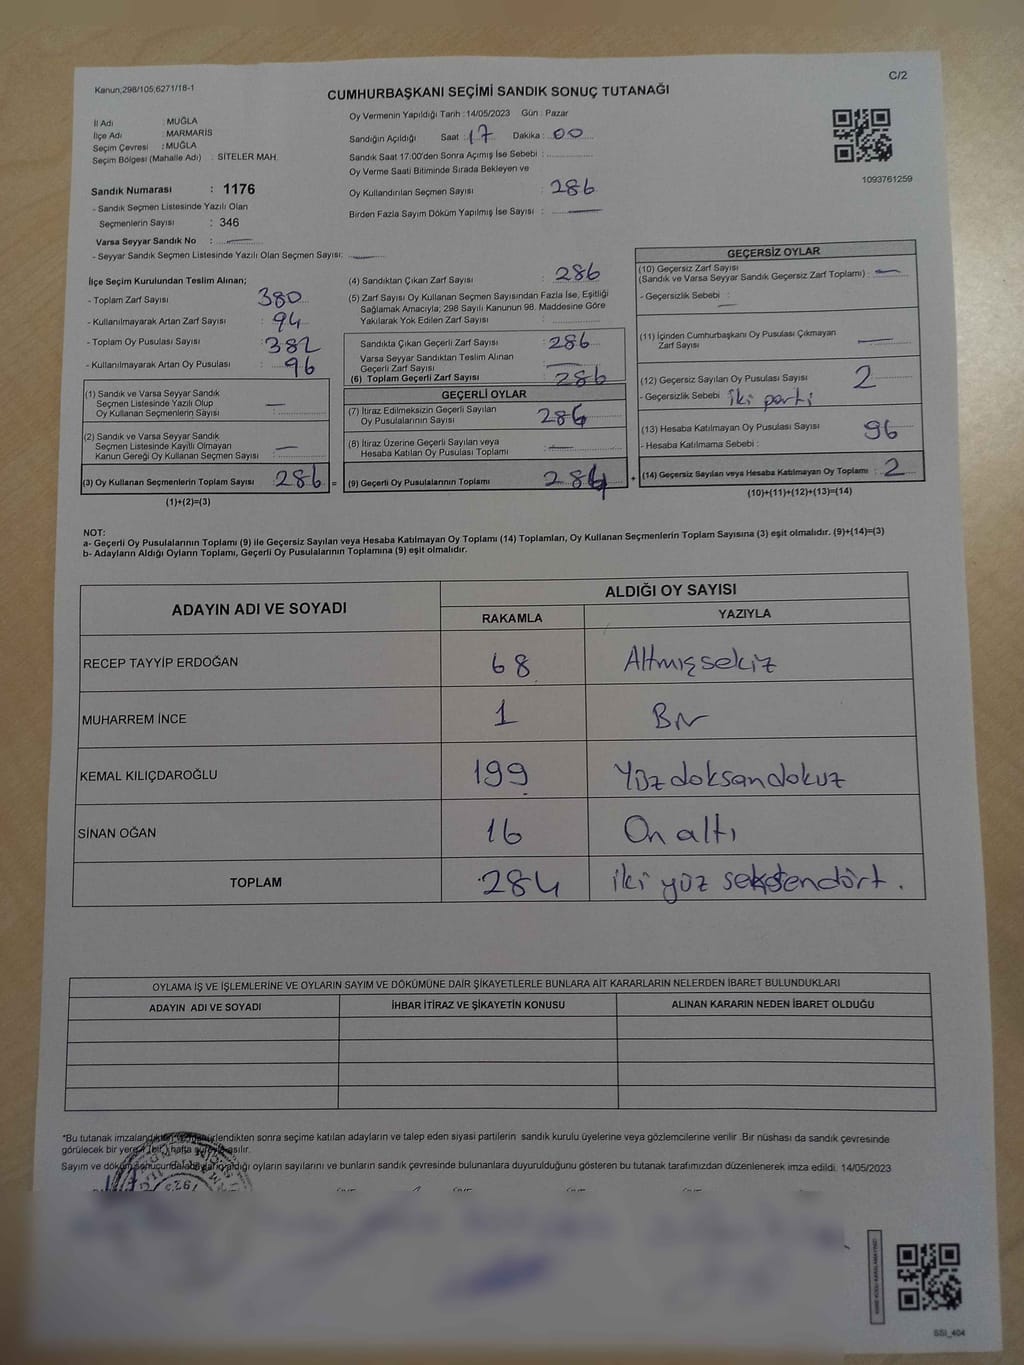 Kanun,298/105,6271/18-1
C/2
CUMHURBAŞKANI SEÇİMİ SANDIK SONUÇ TUTANAĞI
İl Adı : MUĞLA
İlçe Adı : MARMARİS
Seçim Çevresi : MUĞLA
Seçim Bölgesi (Mahalle Adı) : SİTELER MAH.
Sandık Numarası : 1176
- Sandık Seçmen Listesinde Yazılı Olan
Seçmenlerin Sayısı : 346
Varsa Seyyar Sandık No :
- Seyyar Sandık Seçmen Listesinde Yazılı Olan Seçmen Sayısı:
Oy Vermenin Yapıldığı Tarih :14/05/2023 Gün : Pazar
Sandığın Açıldığı Saat : 17 Dakika : 00
Sandık Saat 17:00'den Sonra Açımış İse Sebebi :
Oy Verme Saati Bitiminde Sırada Bekleyen ve
Oy Kullandırılan Seçmen Sayısı : 286
Birden Fazla Sayım Döküm Yapılmış İse Sayısı :
1093761259
İlçe Seçim Kurulundan Teslim Alınan;
- Toplam Zarf Sayısı : 380
- Kullanılmayarak Artan Zarf Sayısı : 94
- Toplam Oy Pusulası Sayısı : 382
- Kullanılmayarak Artan Oy Pusulası : 96
(1) Sandık ve Varsa Seyyar Sandık
Seçmen Listesinde Yazılı Olup
Oy Kullanan Seçmenlerin Sayısı : —
(2) Sandık ve Varsa Seyyar Sandık
Seçmen Listesinde Kayıtlı Olmayan
Kanun Gereği Oy Kullanan Seçmen Sayısı : —
(3) Oy Kullanan Seçmenlerin Toplam Sayısı : 286 =
(1)+(2)=(3)
(4) Sandıktan Çıkan Zarf Sayısı : 286
(5) Zarf Sayısı Oy Kullanan Seçmen Sayısından Fazla İse, Eşitliği
Sağlamak Amacıyla; 298 Sayılı Kanunun 98. Maddesine Göre
Yakılarak Yok Edilen Zarf Sayısı :
Sandıkta Çıkan Geçerli Zarf Sayısı : 286
Varsa Seyyar Sandıktan Teslim Alınan
Geçerli Zarf Sayısı : —
(6) Toplam Geçerli Zarf Sayısı : 286
GEÇERLİ OYLAR
(7) İtiraz Edilmeksizin Geçerli Sayılan
Oy Pusulalarının Sayısı : 284
(8) İtiraz Üzerine Geçerli Sayılan veya
Hesaba Katılan Oy Pusulası Toplamı : —
(9) Geçerli Oy Pusulalarının Toplamı : 284 +
GEÇERSİZ OYLAR
(10) Geçersiz Zarf Sayısı
(Sandık ve Varsa Seyyar Sandık Geçersiz Zarf Toplamı) : —
- Geçersizlik Sebebi : —
(11) İçinden Cumhurbaşkanı Oy Pusulası Çıkmayan
Zarf Sayısı : —
(12) Geçersiz Sayılan Oy Pusulası Sayısı : 2
- Geçersizlik Sebebi : iki parti
(13) Hesaba Katılmayan Oy Pusulası Sayısı : 96
- Hesaba Katılmama Sebebi :
(14) Geçersiz Sayılan veya Hesaba Katılmayan Oy Toplamı : 2
(10)+(11)+(12)+(13)=(14)
NOT:
a- Geçerli Oy Pusulalarının Toplamı (9) ile Geçersiz Sayılan veya Hesaba Katılmayan Oy Toplamı (14) Toplamları, Oy Kullanan Seçmenlerin Toplam Sayısına (3) eşit olmalıdır. (9)+(14)=(3)
b- Adayların Aldığı Oyların Toplamı, Geçerli Oy Pusulalarının Toplamına (9) eşit olmalıdır.
ADAYIN ADI VE SOYADI
ALDIĞI OY SAYISI
RAKAMLA YAZIYLA
RECEP TAYYİP ERDOĞAN 68 Altmışsekiz
MUHARREM İNCE 1 Bir
KEMAL KILIÇDAROĞLU 199 Yüz doksandokuz
SİNAN OĞAN 16 On altı
TOPLAM 284 iki yüz seksendört.
OYLAMA İŞ VE İŞLEMLERİNE VE OYLARIN SAYIM VE DÖKÜMÜNE DAİR ŞİKAYETLERLE BUNLARA AİT KARARLARIN NELERDEN İBARET BULUNDUKLARI
ADAYIN ADI VE SOYADI İHBAR İTİRAZ VE ŞİKAYETİN KONUSU ALINAN KARARIN NEDEN İBARET OLDUĞU
*Bu tutanak imzalandıktan ve mühürlendikten sonra seçime katılan adayların ve talep eden siyasi partilerin sandık kurulu üyelerine veya gözlemcilerine verilir .Bir nüshası da sandık çevresinde
görülecek bir yere (bir) hafta süreyle asılır.
Sayım ve döküm sonucunda adayların aldığı oyların sayılarını ve bunların sandık çevresinde bulunanlara duyurulduğunu gösteren bu tutanak tarafımızdan düzenlenerek imza edildi. 14/05/2023
SSI_404